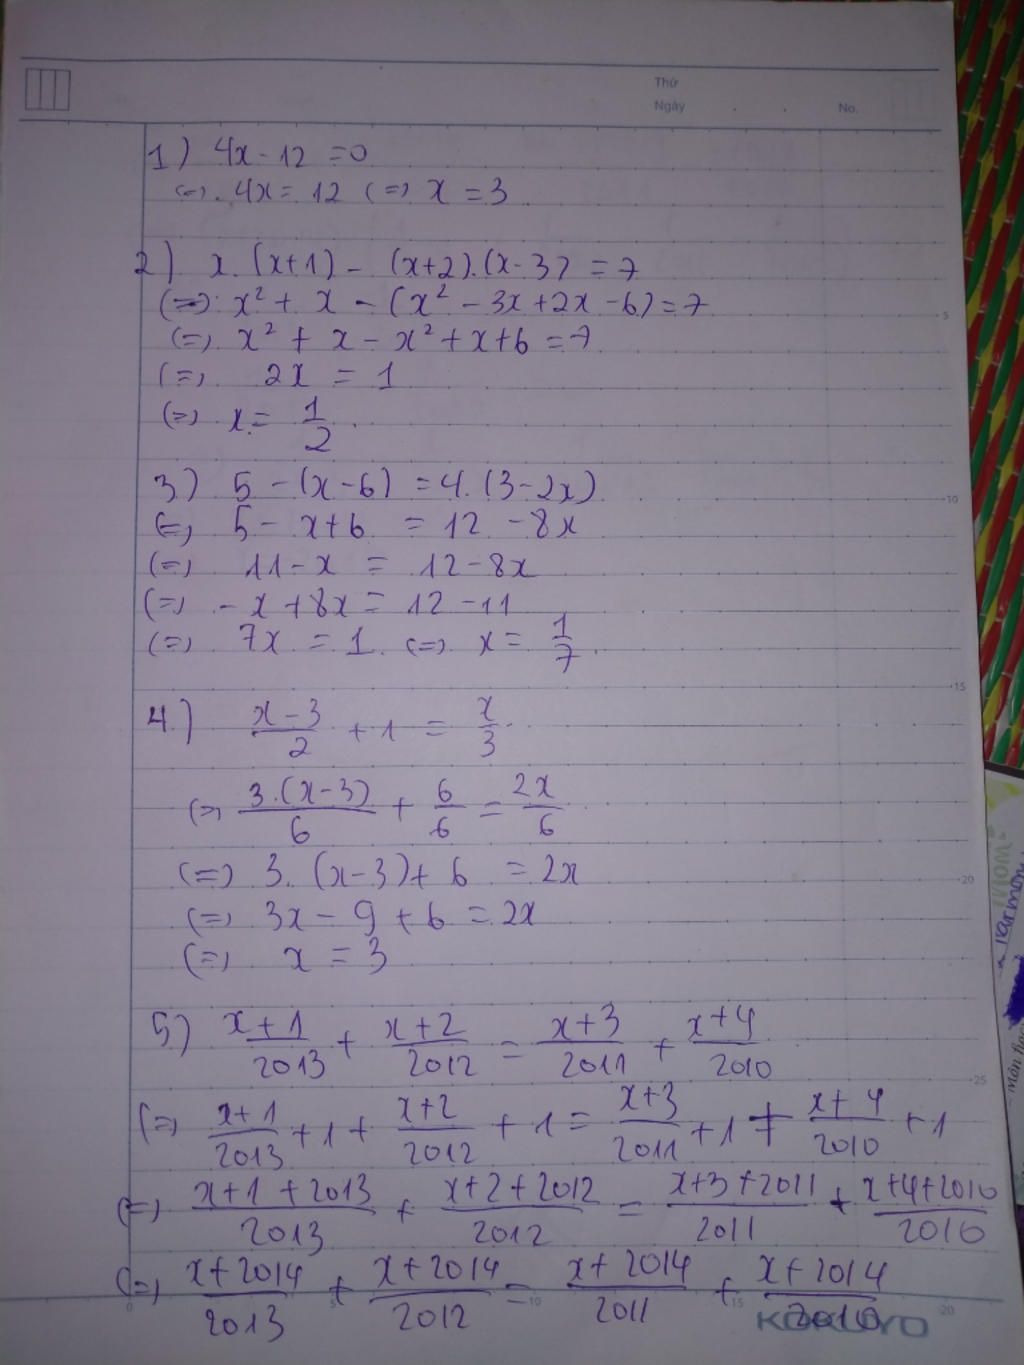 Thứ
Ngày . . No.
1) 4x - 12 = 0
(=) 4x = 12 (=) x = 3
2) x.(x+1) - (x+2).(x-3) = 7
(=) x² + x - (x² - 3x + 2x - 6) = 7
(=) x² + x - x² + x + 6 = 7
(=) 2x = 1
(=) x = 1/2
3) 5 - (x-6) = 4.(3-2x)
(=) 5 - x + 6 = 12 - 8x
(=) 11 - x = 12 - 8x
(=) -x + 8x = 12 - 11
(=) 7x = 1 (=) x = 1/7
4.) (x-3)/2 + 1 = x/3
(=) 3.(x-3)/6 + 6/6 = 2x/6
(=) 3.(x-3) + 6 = 2x
(=) 3x - 9 + 6 = 2x
(=) x = 3
5) (x+1)/2013 + (x+2)/2012 = (x+3)/2011 + (x+4)/2010
(=) (x+1)/2013 + 1 + (x+2)/2012 + 1 = (x+3)/2011 + 1 + (x+4)/2010 + 1
(=) (x+1+2013)/2013 + (x+2+2012)/2012 = (x+3+2011)/2011 + (x+4+2010)/2010
(=) (x+2014)/2013 + (x+2014)/2012 = (x+2014)/2011 + (x+2014)/2010
KOKUYO
5
10
15
20
25
0 5 10 15 20